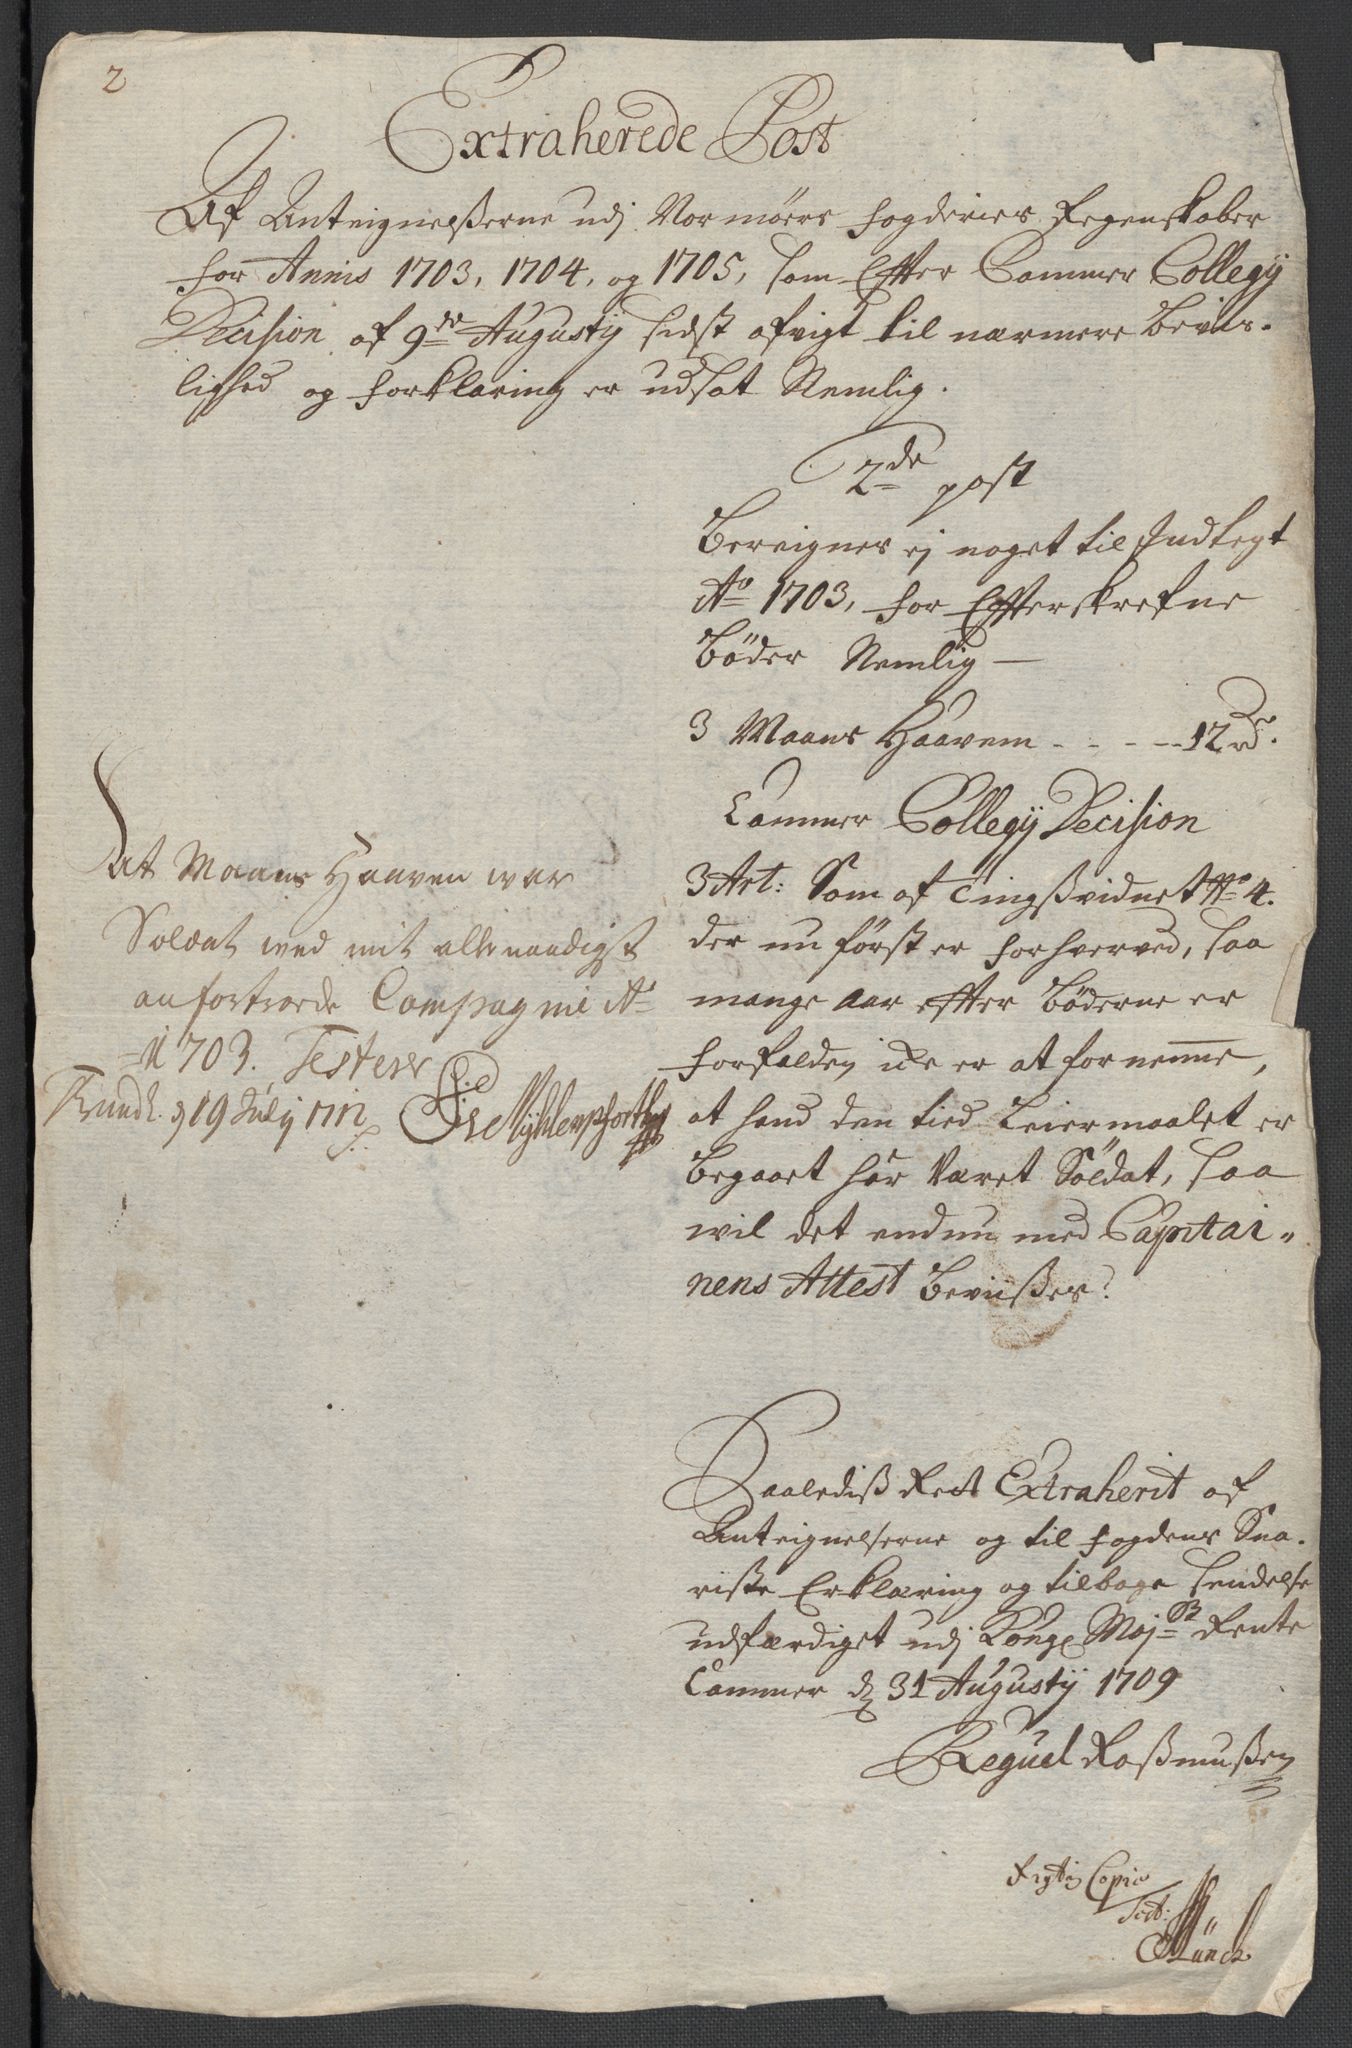 2
Extraherede Post
Af Anteignelßerne udj Normøers fogderies Regenskaber
for Annis 1703, 1704, og 1705, som Effter Cammer Collegij
Decision af 9de Augustij sidst afvigt til nærmere Beviis-
lighed og forklaring er udsat Nemlig.
2de post
Bereignes ej noget til Indtegt
Ao 1703, for Effterskrefne
Bøder Nemlig —
3 Maans Haavem - - - - - 12 rd.
Cammer Collegij Decision
3 Art: Som af Tingßvidnet No 4.
der nu først er forhverved, saa
mange aar effter bøderne er
forfalden icke er at fornemme,
at hand den tied Leiermaalet er
begaaet har været Soldat, saa
wil det endnu med Captai-
nens Attest beviißes?
At Maans Haaven war
Soldat ved mit allernaadigst
anfortroede Compagnie Ao
1703. Testerer
Trundh. d 19 Julij 1712
Mÿhlenphort
Saalediß Ret Extraherit af
Anteignelserne og til fogdens Sva-
riste Erklæring og tilbage sendelse
udfærdiget udj Kongl Maj:tz Rente
Cammer d 31 Augustij 1709
Reguel Raßmußen
Rigtig Copie
Test:
Münch